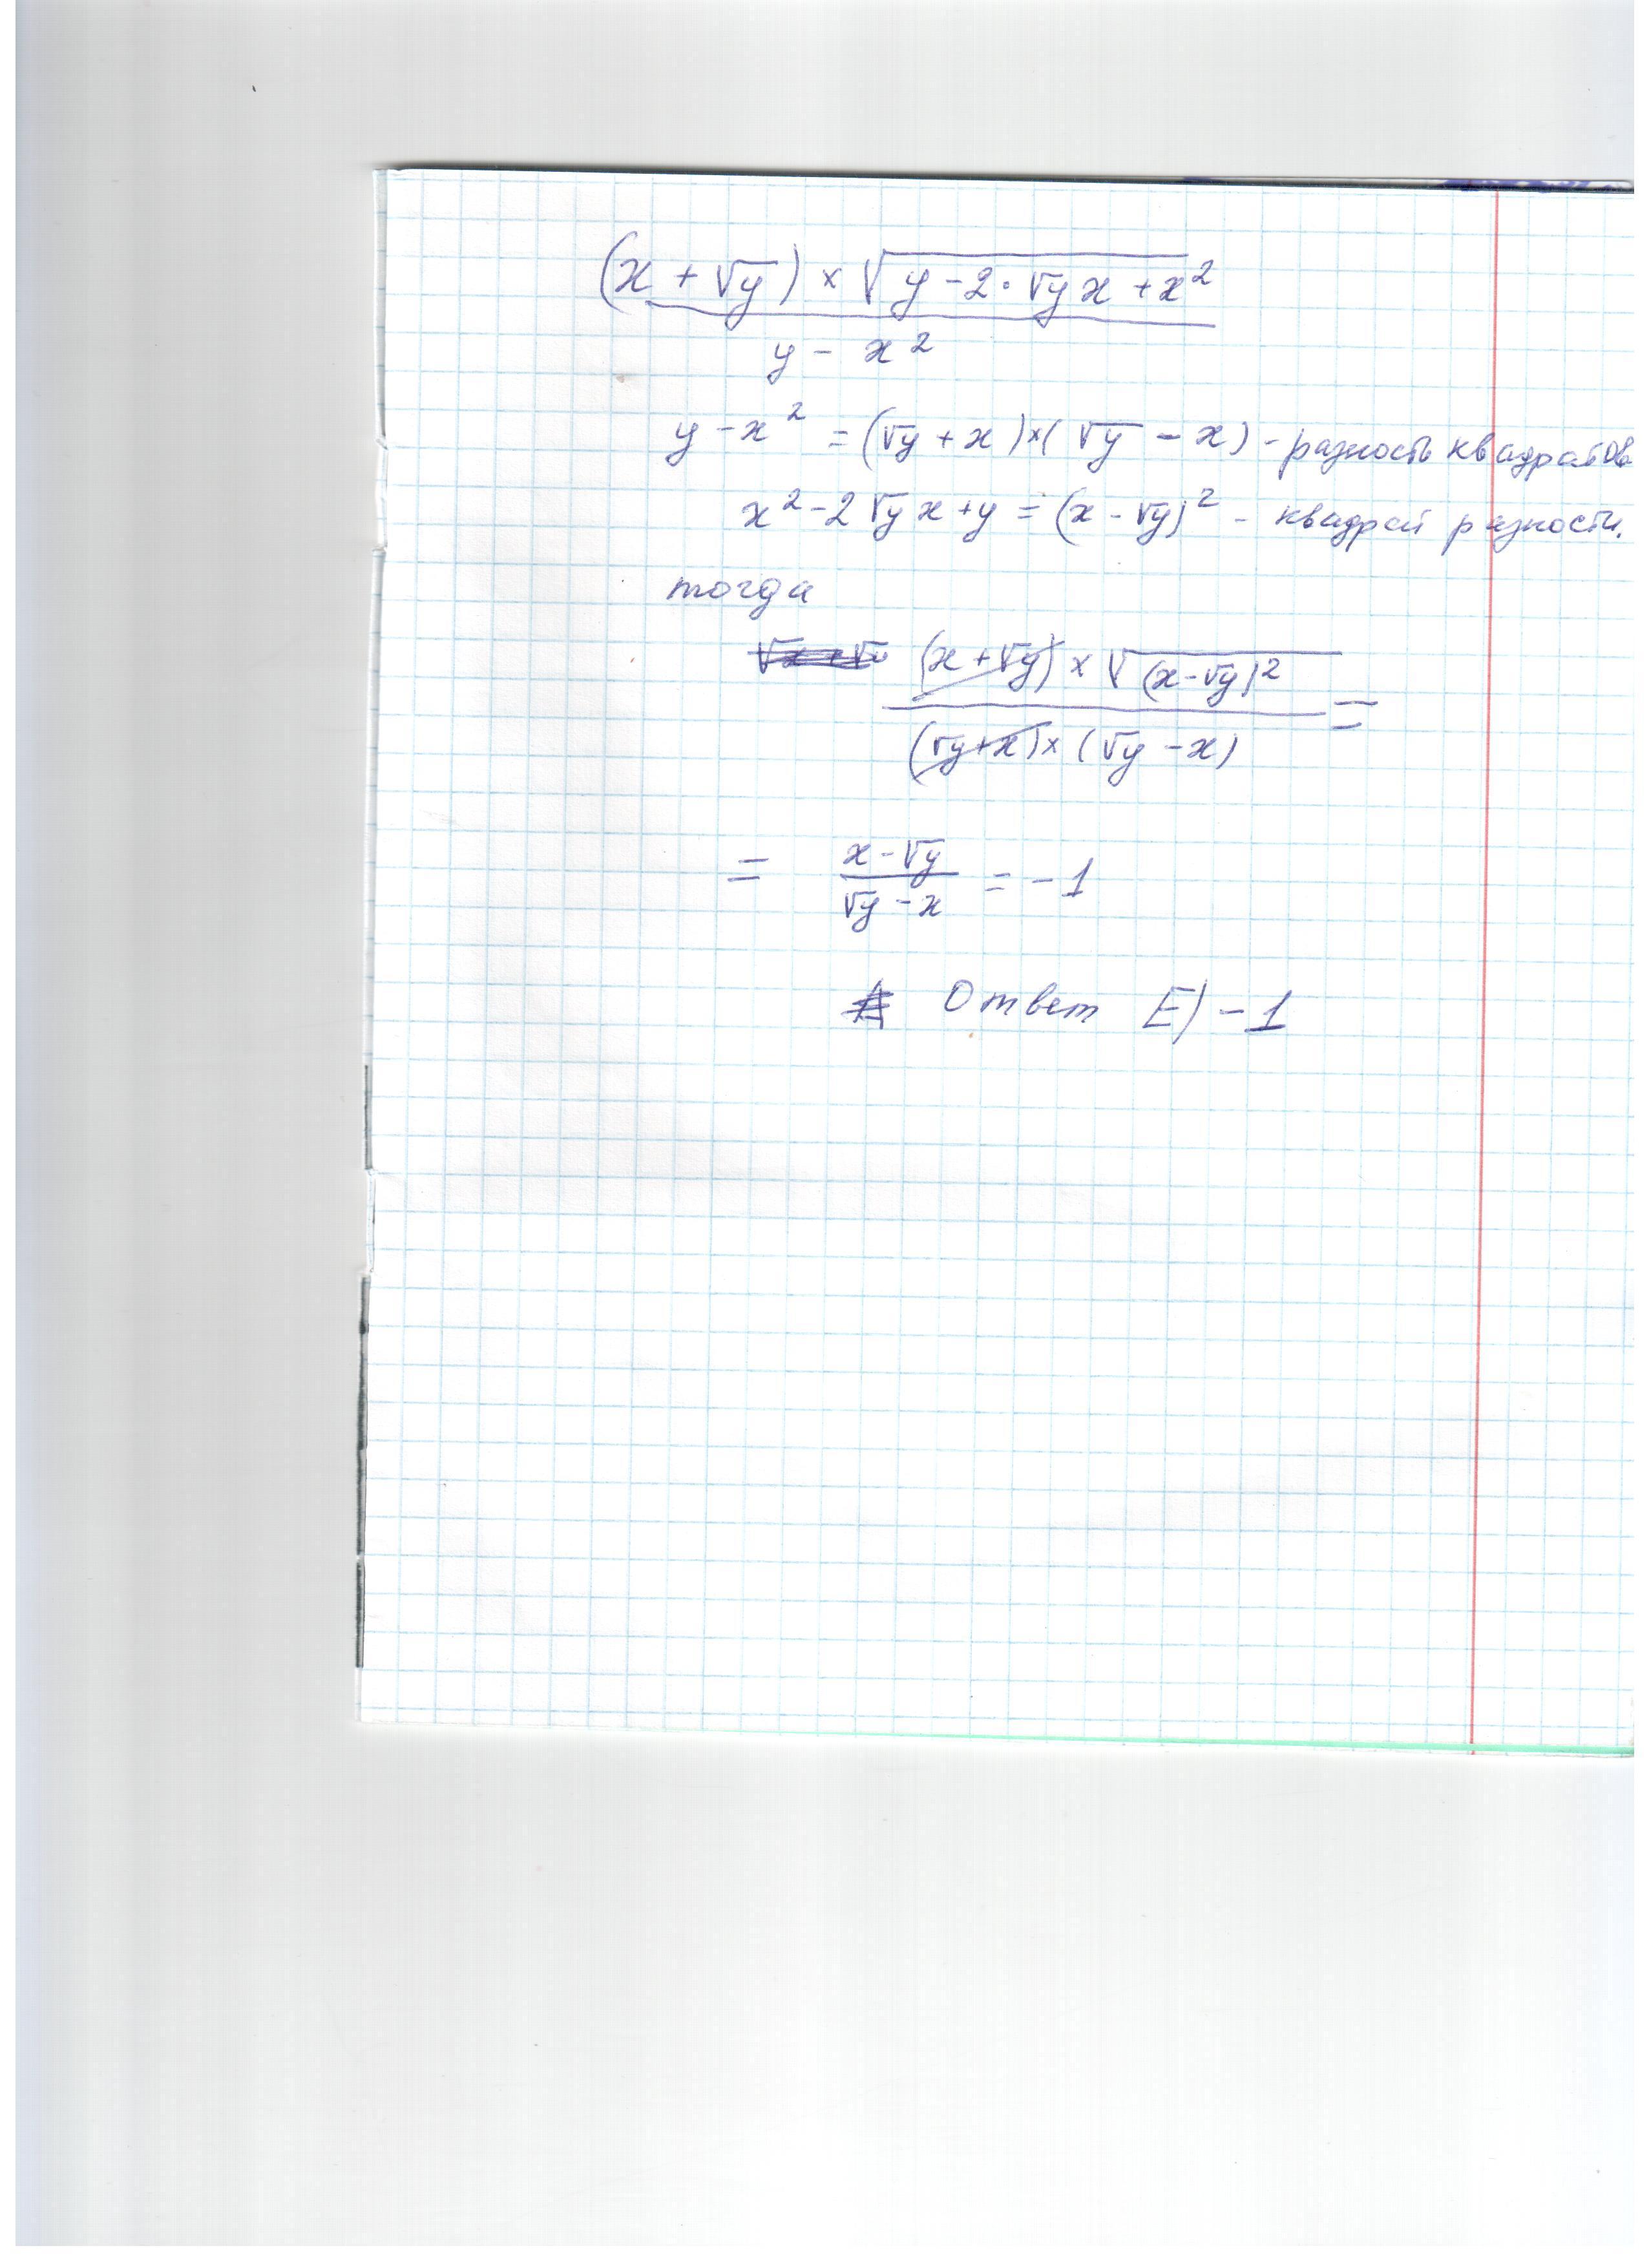 (x + √y) × √y - 2 · √y x + x²
y - x²
y - x² = (√y + x) × (√y - x) - разность квадратов
x² - 2√y x + y = (x - √y)² - квадрат разности.
тогда
(x + √y) × √(x - √y)² =
(√y + x) × (√y - x)
= x - √y = -1
√y - x
Ответ E) - 1